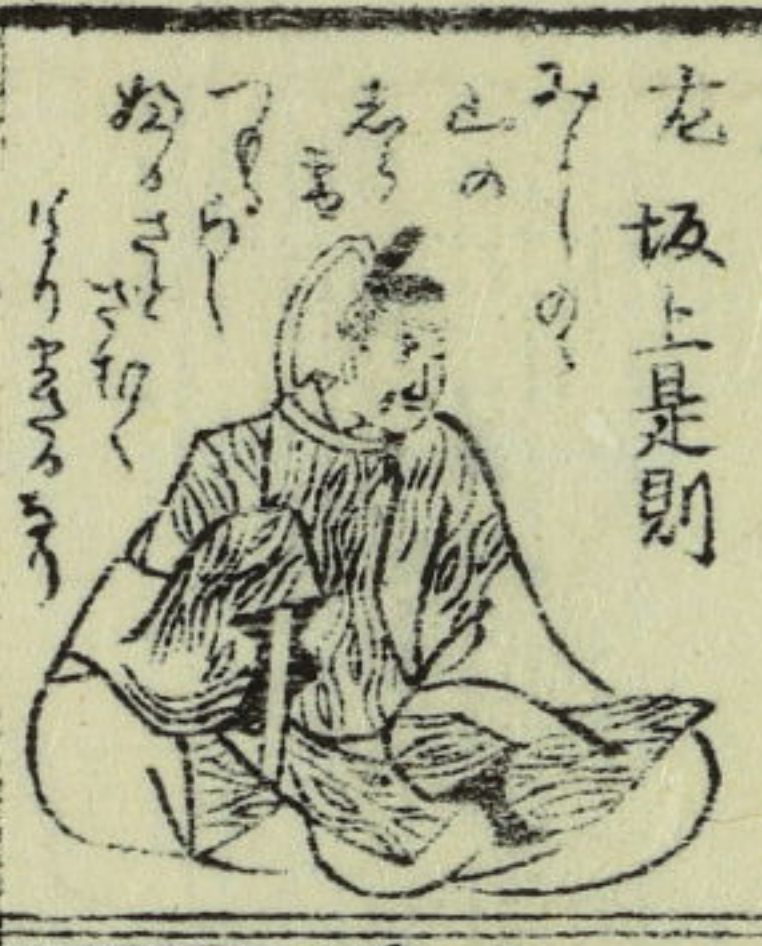 左 坂上是則
みよしのゝ
山の
志ら
雪
つもるらし
ふるさと
さむく
なりまさるなり